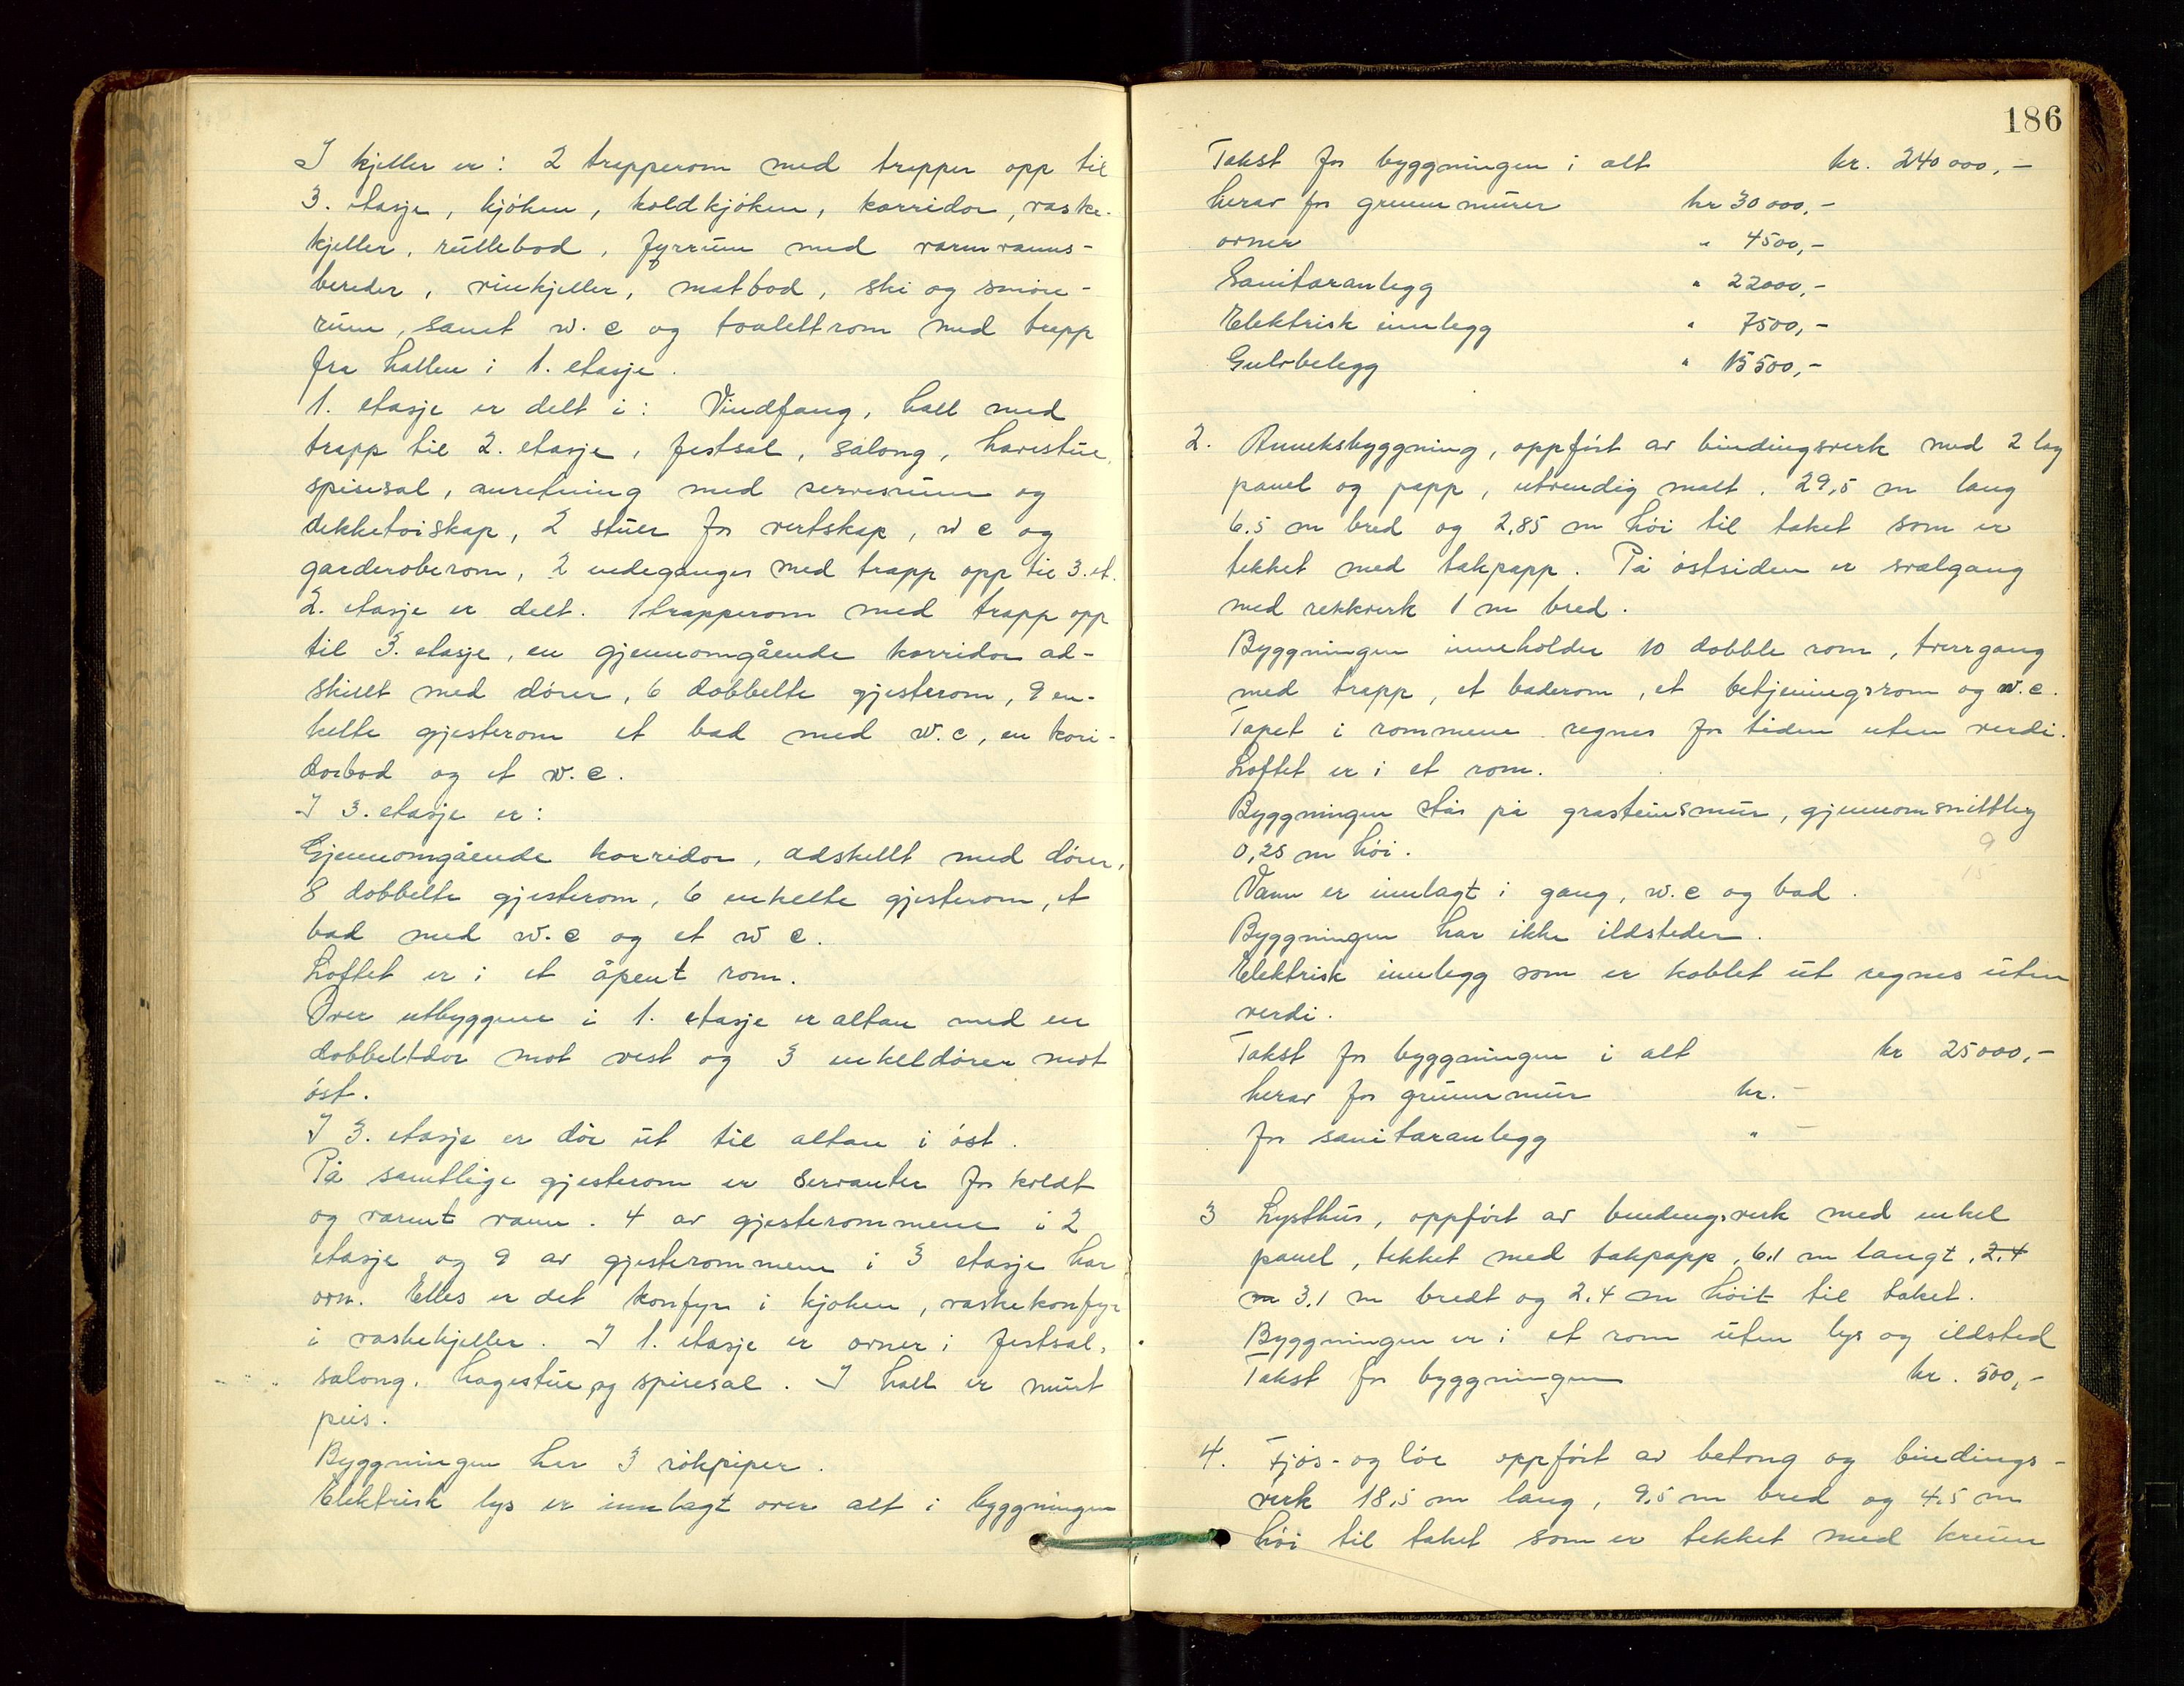 I kjeller er: 2 trapperom med trapper opp til
3. etasje, kjöken, koldkjöken, korridor, vaske-
kjeller, rullebod, fyrrum med varmvanns-
bereder, vinkjeller, matbod, ski og smöre-
rum, samt w.c og toalettrom med trapp
fra hallen i 1. etasje.
1. etasje er delt i: Vindfang, hall med
trapp til 2. etasje, festsal, salong, havestue,
spisesal, anretning med servisrum og
dekketöiskap, 2 stuer for vertskap, w c og
garderoberom, 2 nedeganger med trapp opp til 3. et.
2. etasje er delt. 1 trapperom med trapp opp
til 3. etasje, en gjennomgående korridor ad-
skillt med dörer, 6 dobbelte gjesterom, 9 en-
kelte gjesterom et bad med w.c, en kori-
dorbod og et w.c.
I 3. etasje er:
Gjennomgående korridor, adskillt med dörer,
8 dobbelte gjesterom, 6 enkelte gjesterom, et
bad med w.c og et w c.
Loftet er i et åpent rom.
Over utbyggene i 1. etasje er altan med en
dobbeltdör mot vest og 3 enkeldörer mot
öst.
I 3. etasje er dör ut til altan i öst.
På samtlige gjesterom er servanter for koldt
og varmt vann. 4 av gjesterommene i 2
etasje og 9 av gjesterommene i 3 etasje har
ovn. Elles er det komfyr i kjöken, vaskekomfyr
i vaskekjeller. I 1. etasje er ovner i festsal,
salong, hagestue og spisesal. I hall er murt
peis.
Byggningen her 3 rökpiper.
Elektrisk lys er innlagt over alt i byggningen
186
Takst for byggningen i alt kr. 240 000,-
herav for grunnmurer kr 30 000,-
ovner " 4500,-
Sanitæranlegg " 22000,-
Elektrisk innlegg " 7500,-
Gulvbelegg " 15500,-
2. Anneksbyggning, oppfört av bindingsverk med 2 lag
panel og papp, utvendig malt. 29,5 m lang
6.5 m bred og 2,85 m höi til taket som er
tekket med takpapp. På östsiden er svalgang
med rekkverk 1 m bred.
Byggningen inneholder 10 dobble rom, tverrgang
med trapp, et baderom, et betjeningsrom og w.c.
Tapet i rommene regnes for tiden uten verdi.
Loftet er i et rom.
Byggningen står på grasteinsmur, gjennomsnittlig
0,25 m höi.
Vann er innlagt i gang, w.c og bad.
Byggningen har ikke ildsteder.
Elektrisk innlegg som er koblet ut regnes uten
verdi.
Takst for byggningen i alt kr 25000,-
herav for grunnmur kr. -
for sanitæranlegg " -
3 Lysthus, oppfört av bindingsverk med enkel
panel, tekket med takpapp, 6.1 m langt, 2.4
m 3.1 m bredt og 2.4 m höit til taket.
Byggningen er i et rom uten lys og ildsted
Takst for byggningen kr. 500,-
4. Fjös- og löe oppfört av betong og bindings-
verk 18,5 m lang, 9,5 m bred og 4,5 m
höi til taket som er tekket med krum